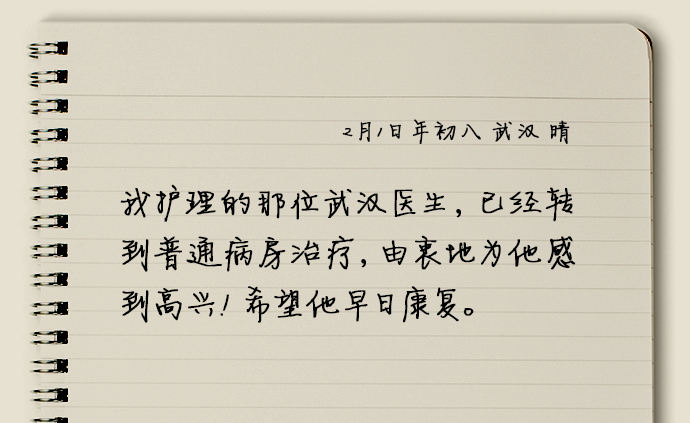 2月1日年初八 武汉 晴
我护理的那位武汉医生，已经转
到普通病房治疗，由衷地为他感
到高兴！希望他早日康复。